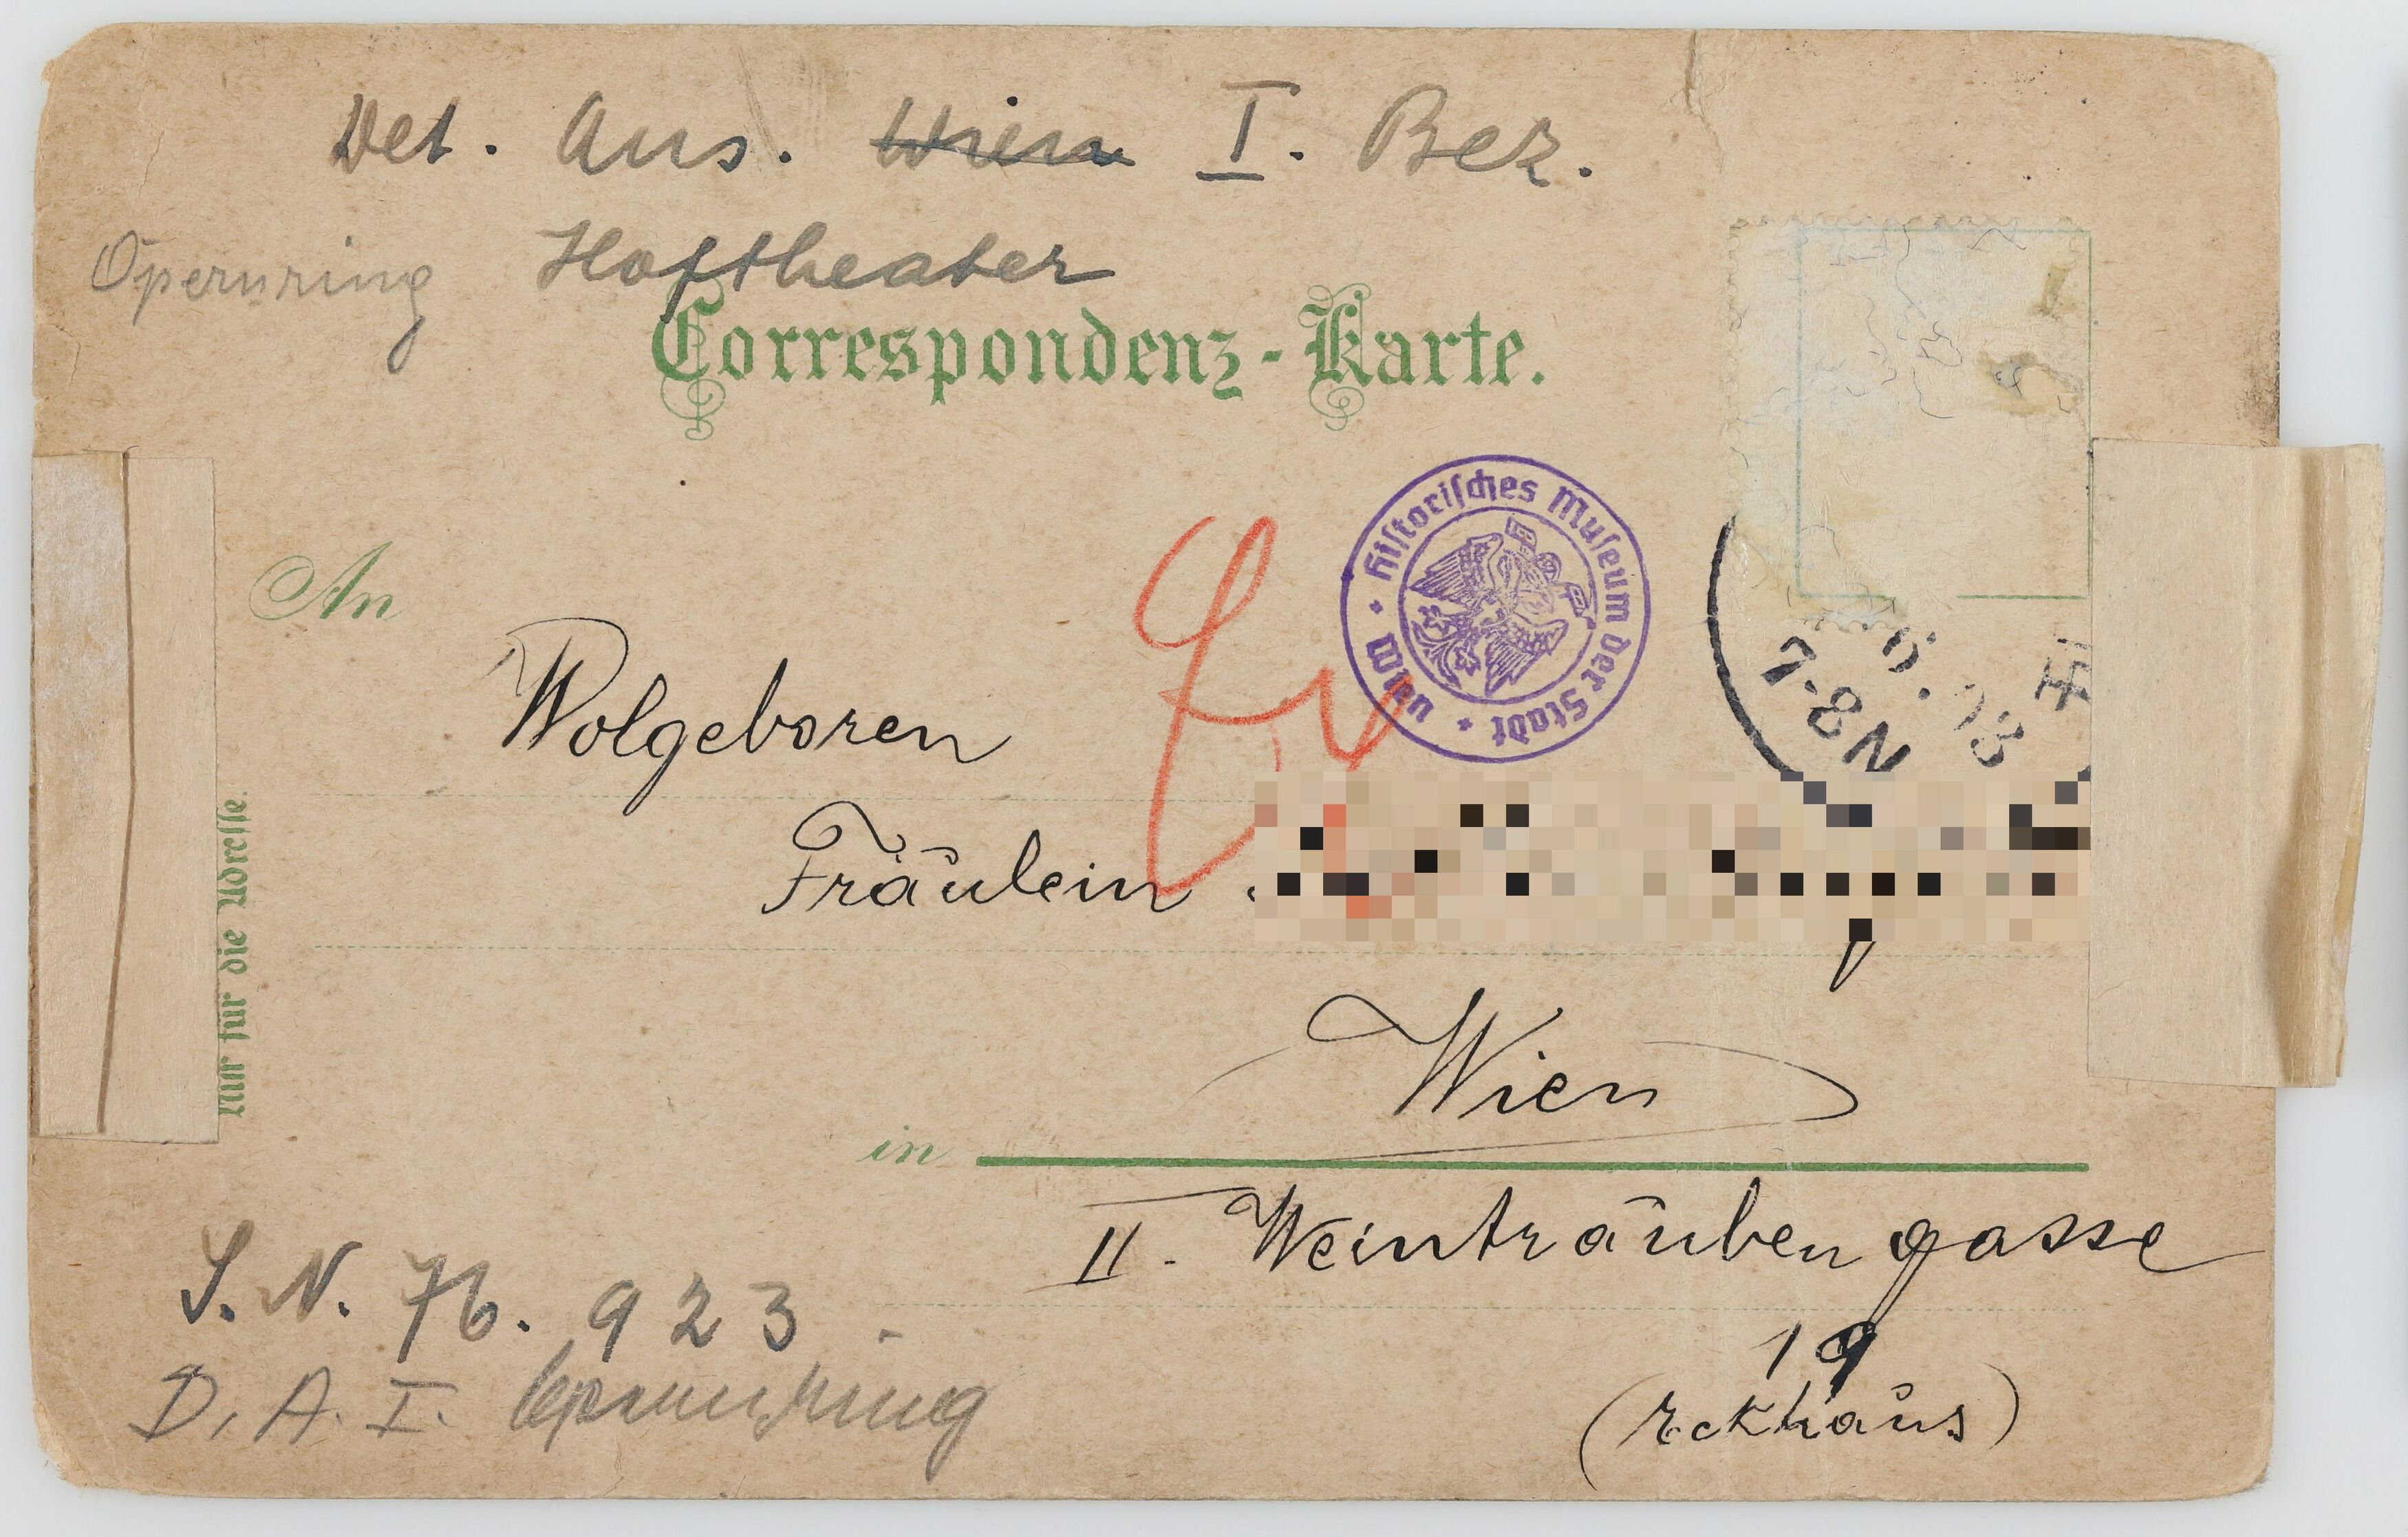 Det. Aus. Wien I. Bez.
Opernring Hoftheater
Correspondenz-Karte.
Historisches Museum der Stadt Wien
An
7-8N
Wolgeboren
Fräulein
Nur für die Adresse.
Wien
in
II. Weintraubengasse
19
(Eckhaus)
S. N. 76. 923.
D. A. I. Opernring